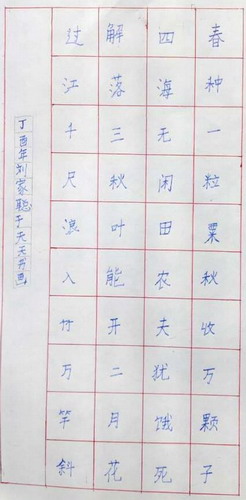 春种一粒粟秋收万颗子
四海无闲田农夫犹饿死
解落三秋叶能开二月花
过江千尺浪入竹万竿斜
丁酉年刘家聪于天天书画